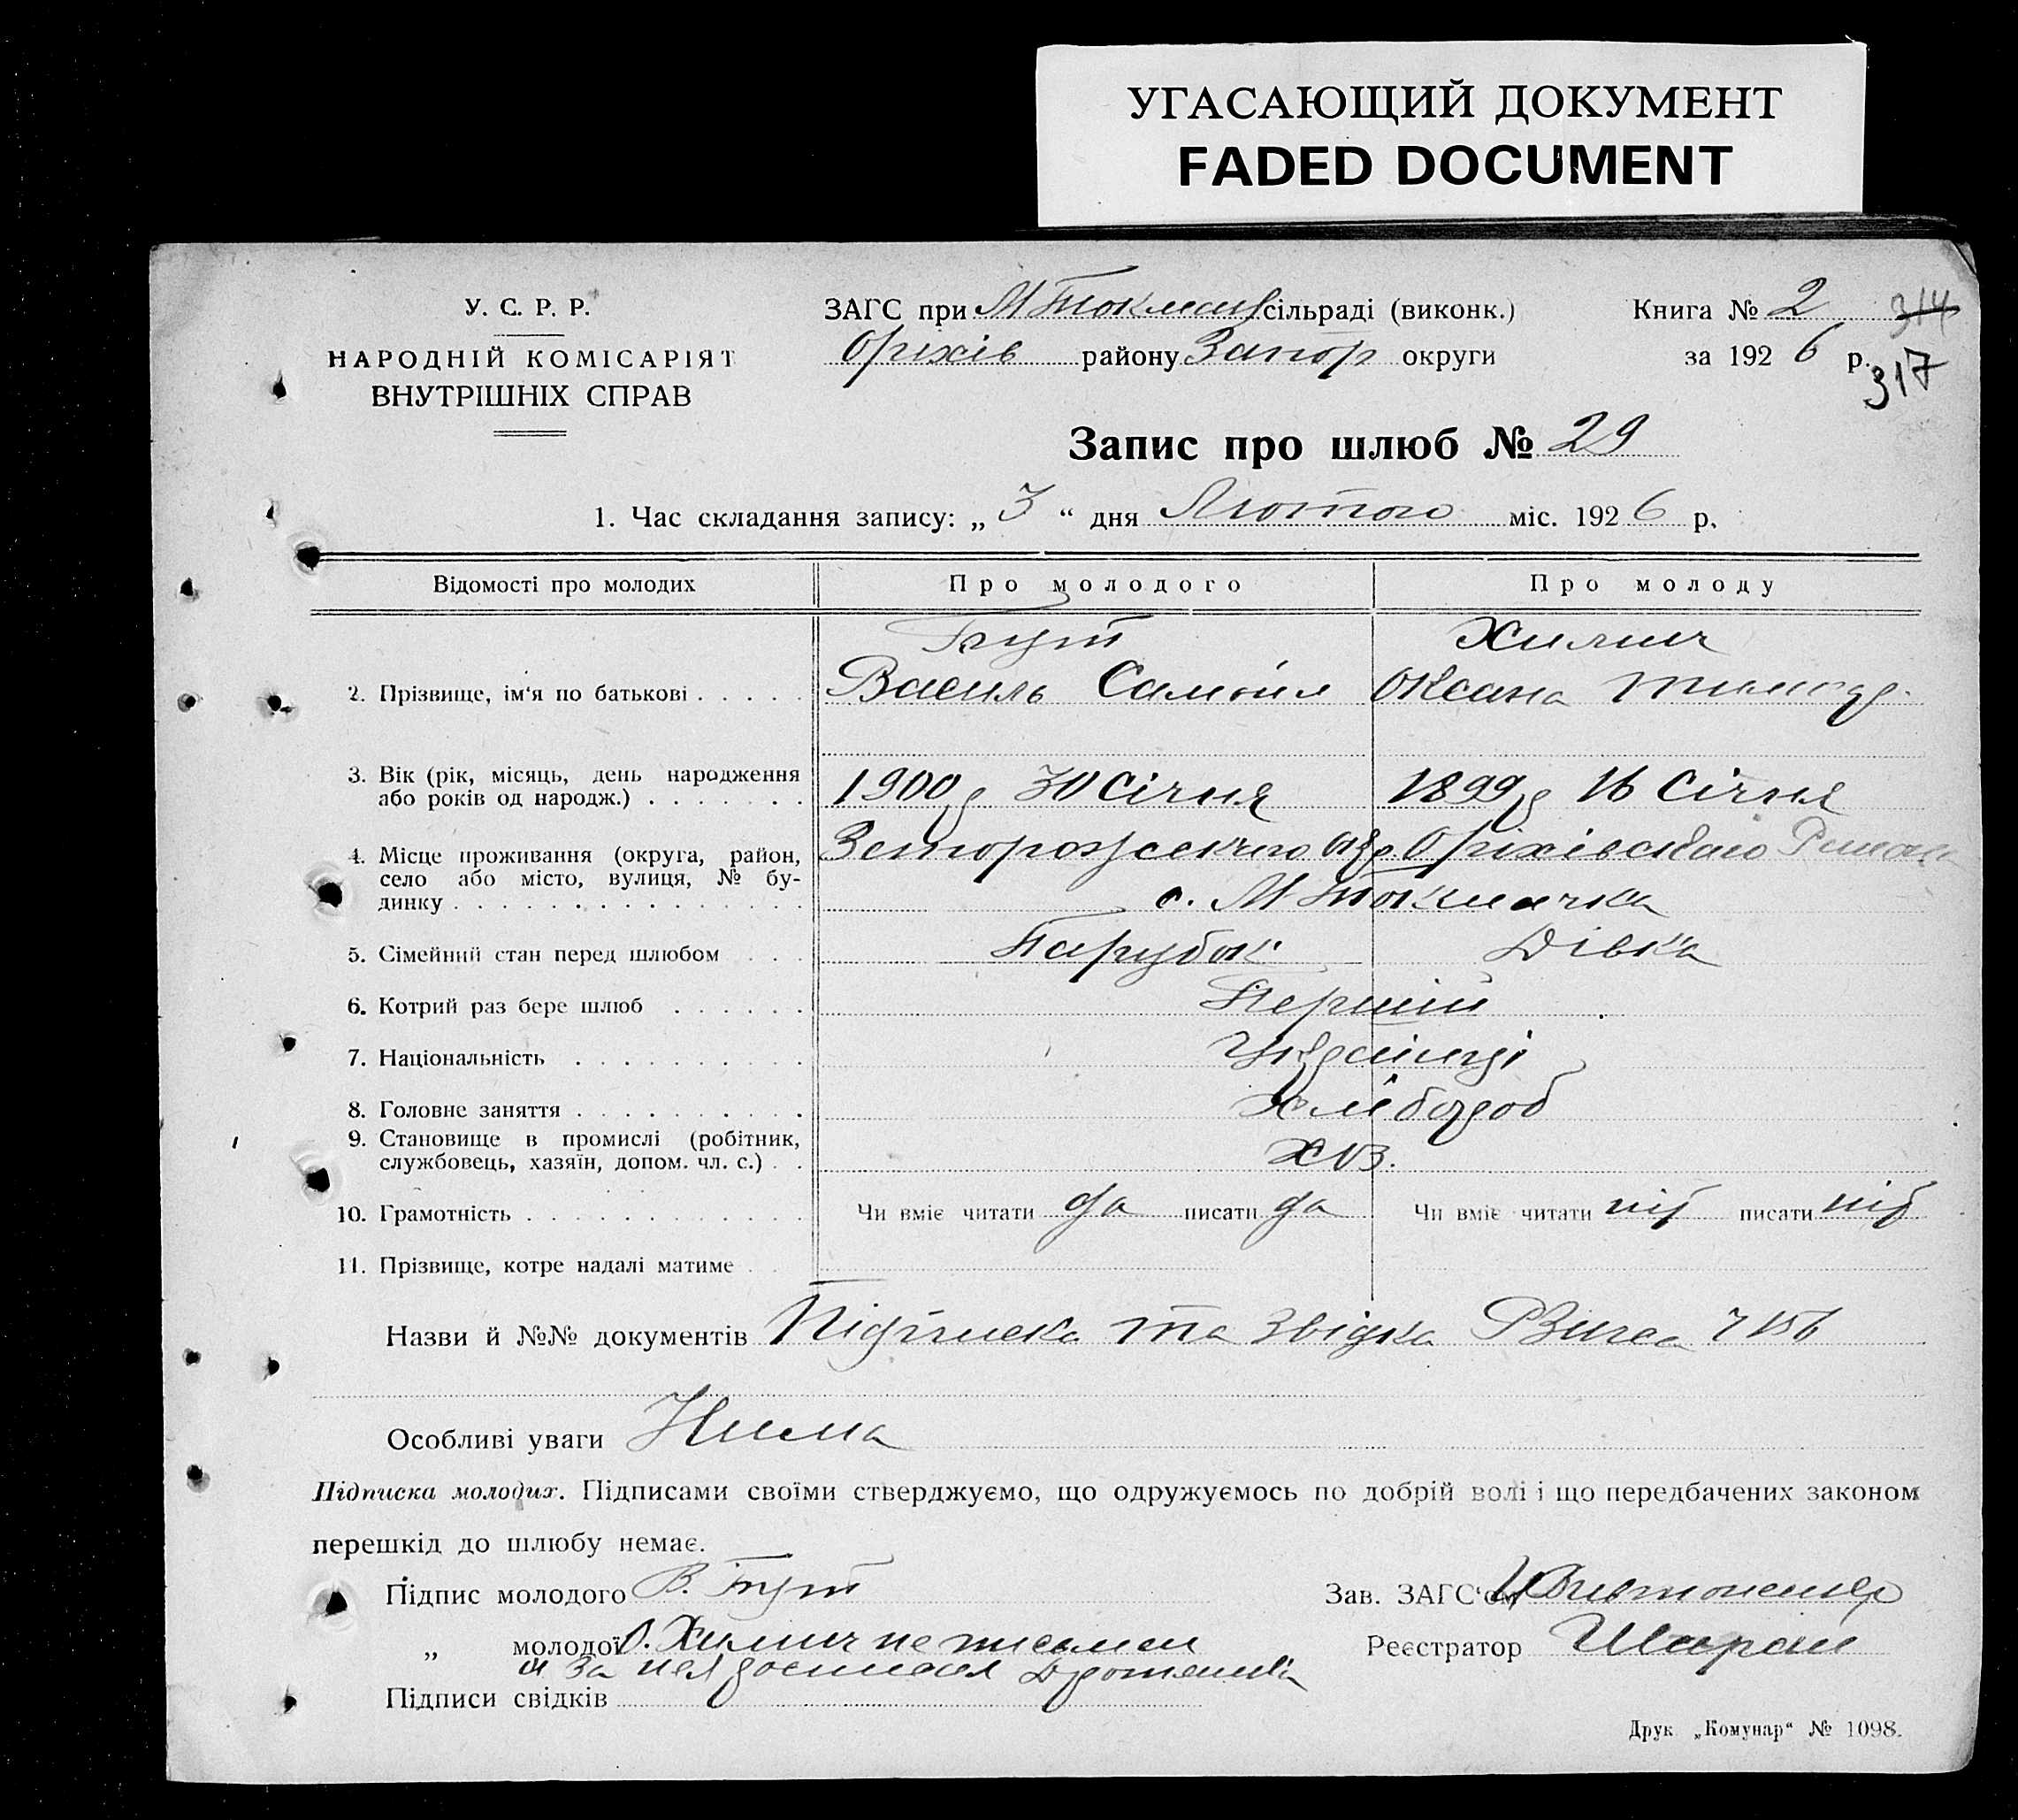 УГАСАЮЩИЙ ДОКУМЕНТ
FADED DOCUMENT
У. С. Р. Р.
НАРОДНІЙ КОМІСАРІЯТ
ВНУТРІШНІХ СПРАВ
ЗАГС при М Токмац сільраді (виконк.)
Оріхів району Запор округи
Книга № 2 314
за 192 6 р.
317
Запис про шлюб № 29
1. Час складання запису: „ 3 “ дня Лютого міс. 192 6 р.
Відомості про молодих Про молодого Про молоду
2. Прізвище, ім'я по батькові . . . . .
Гнут
Василь Самоіл
Химич
Оксана Тимоф.
3. Вік (рік, місяць, день народження
або років од народж.) . . . . . . .
1900 р 30 Січня 1899 р 16 Січня
4. Місце проживання (округа, район,
село або місто, вулиця, № бу-
динку . . . . . . . . . . . . . . .
Запорожського окр. Оріхівского
с. М Токмачка
5. Сімейний стан перед шлюбом . . . Парубок Дівка
6. Котрий раз бере шлюб . . . . . . Перший
7. Національність . . . . . . . . . Українці
8. Головне заняття . . . . . . . . . Хлібороб
9. Становище в промислі (робітник,
службовець, хазяїн, допом. чл. с.) . . Хоз.
10. Грамотність . . . . . . . . . . . Чи вміє читати да писати да Чи вміє читати ніт писати ніт
11. Прізвище, котре надалі матиме . . .
Назви й №№ документів Підписка та звідка 7156
Особливі уваги Нима
Підписка молодих. Підписами своїми стверджуємо, що одружуємось по добрій волі і що передбачених законом
перешкід до шлюбу немає.
Підпис молодого В. Гнут
Зав. ЗАГС'ом
„ молодої О. Химич не письмен
и за нея росписался
Реєстратор Шарай
Підписи свідків
Друк „Комунар“ № 1098.